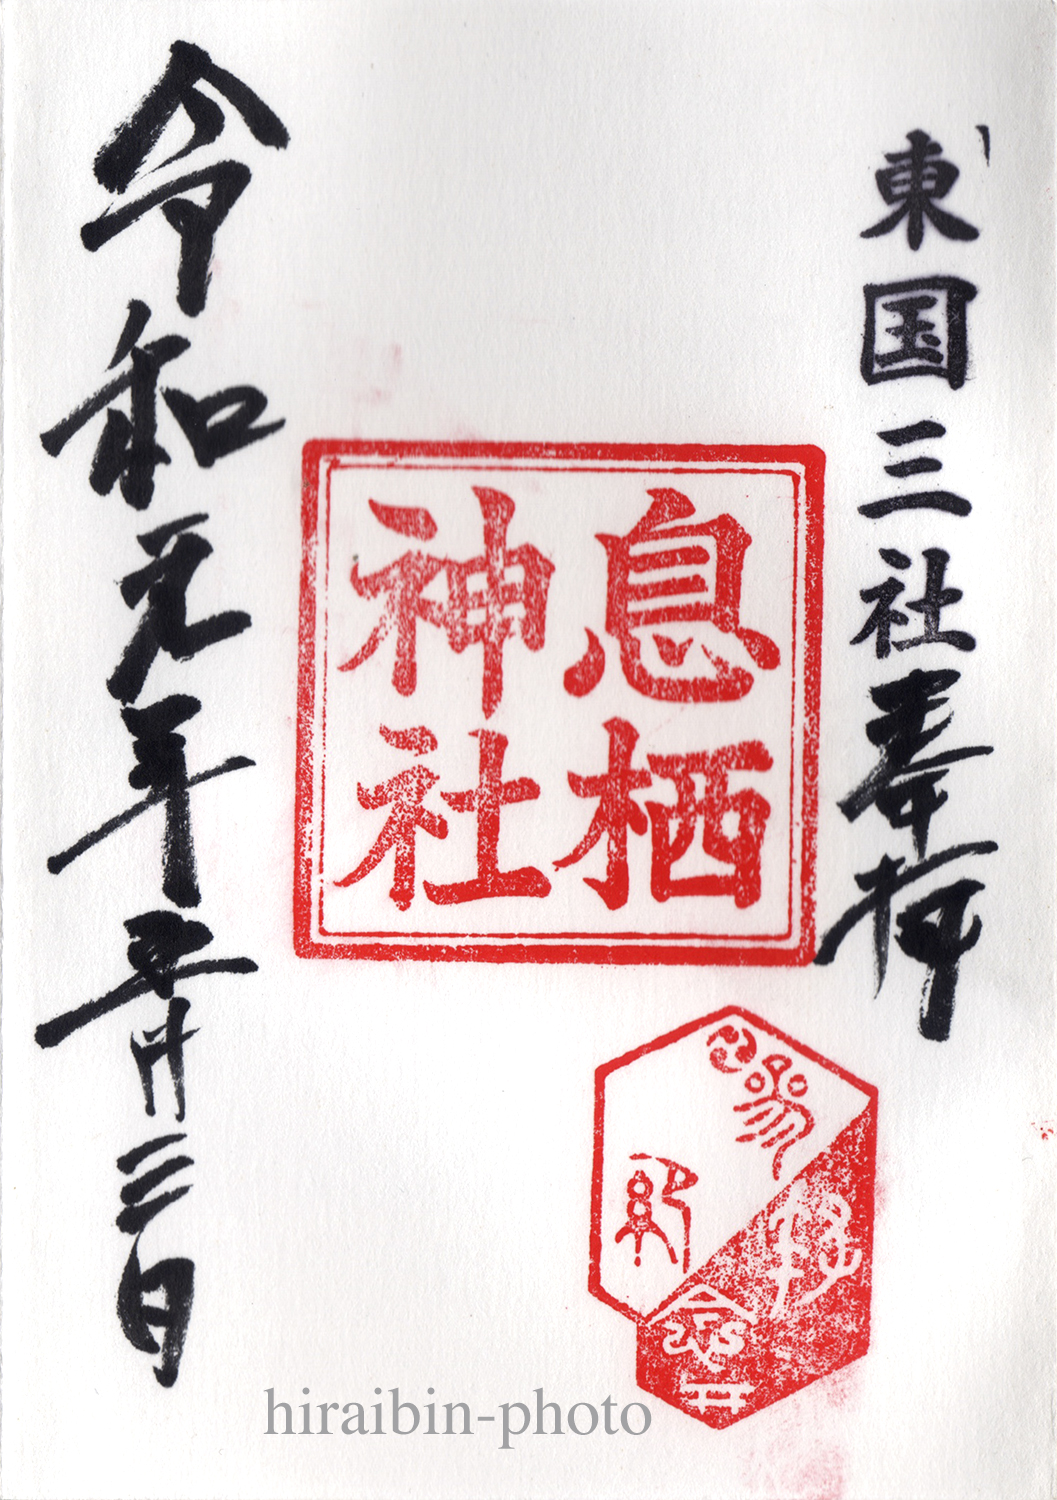 東国三社奉拝
息栖
神社
令和元年五月三日
hiraibin-photo